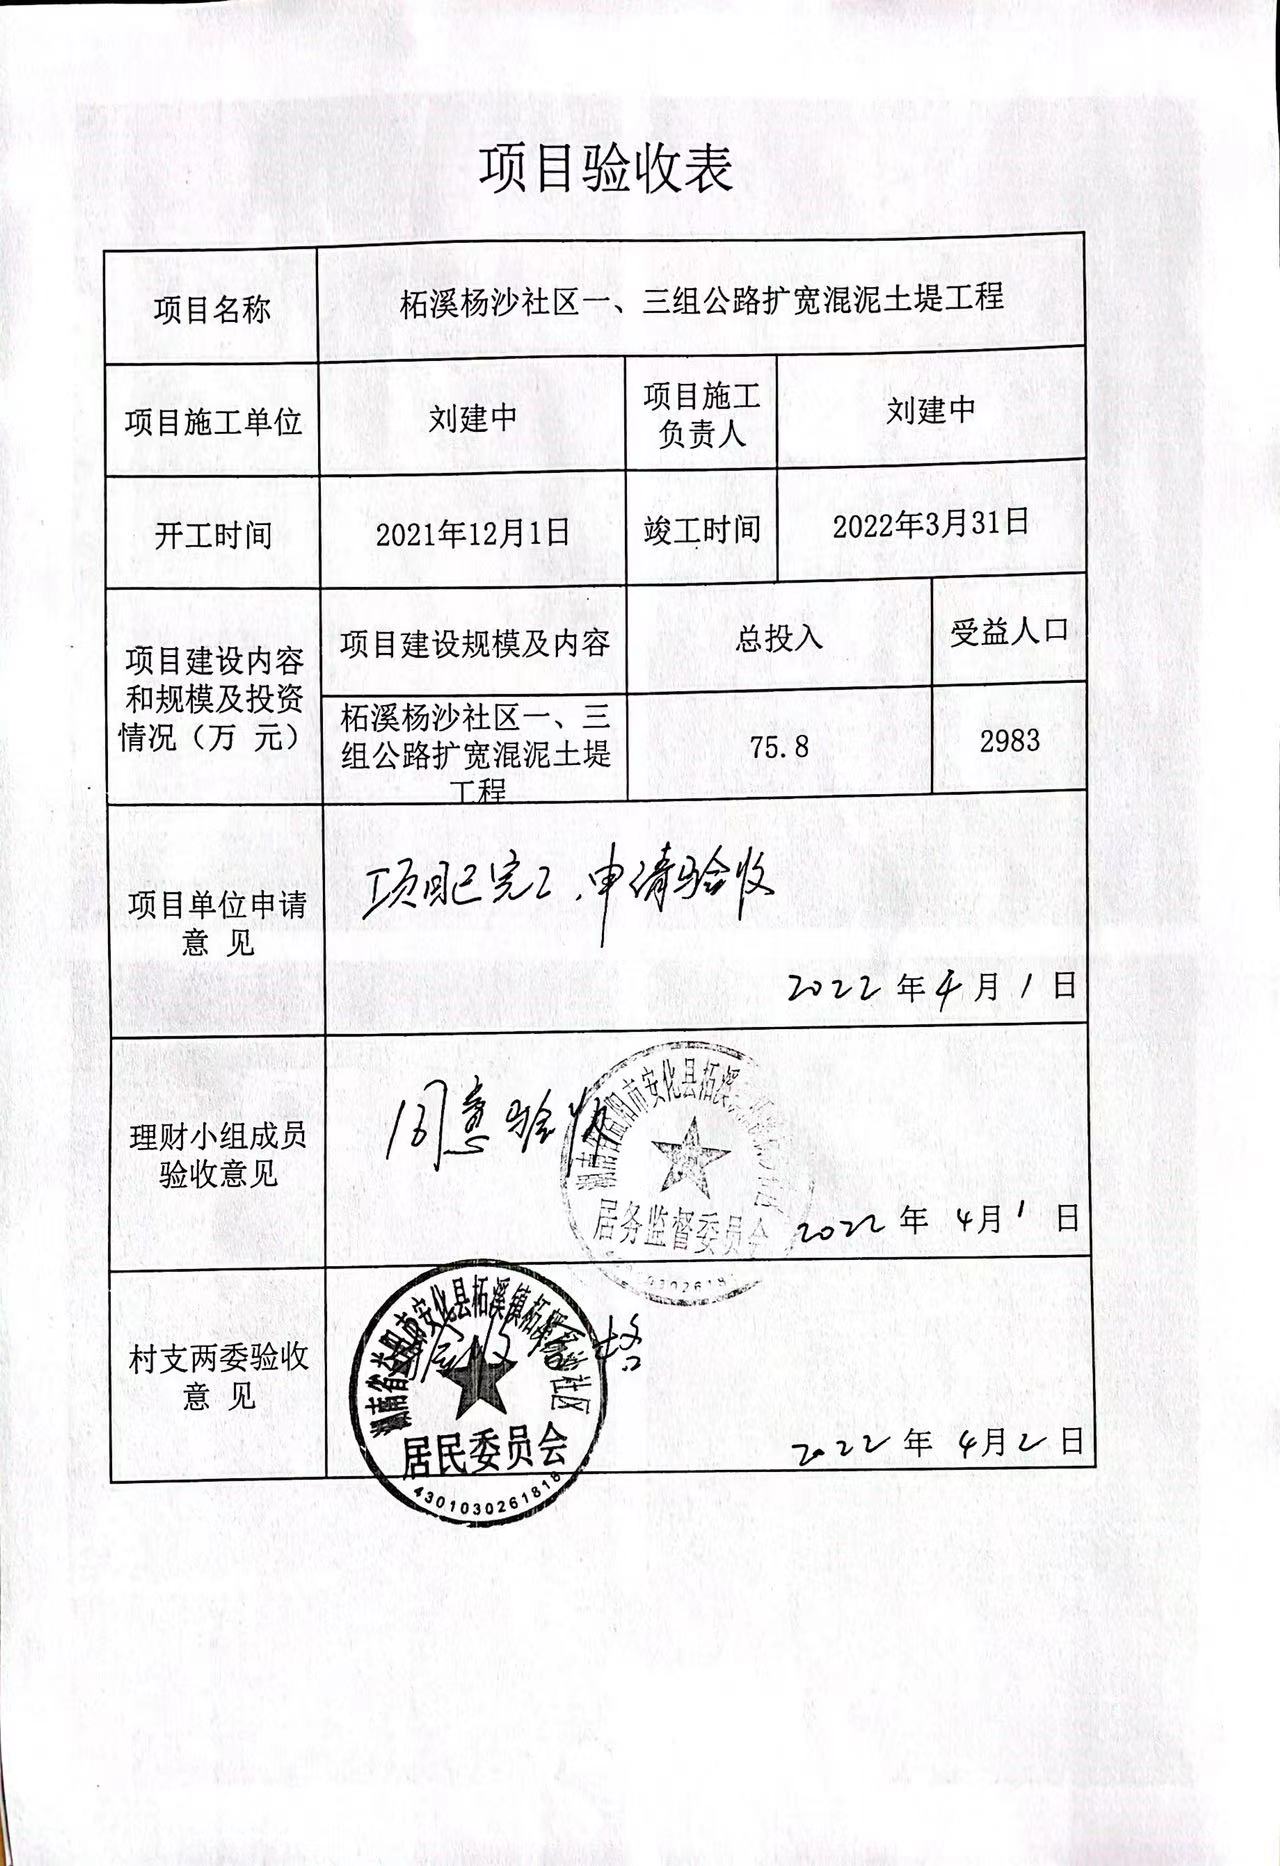 项目验收表
项目名称
柘溪杨沙社区一、三组公路扩宽混泥土堤工程
项目施工单位
刘建中
项目施工
负责人
刘建中
开工时间
2021年12月1日
竣工时间
2022年3月31日
项目建设内容
和规模及投资
情况（万 元）
项目建设规模及内容
总投入
受益人口
柘溪杨沙社区一、三
组公路扩宽混泥土堤
工程
75.8
2983
项目单位申请
意 见
项目已完工.申请验收
2022年4月1日
理财小组成员
验收意见
同意验收
居务监督委员会
2022年4月1日
村支两委验收
意 见
验收合格
湖南省益阳市安化县柘溪镇柘溪杨沙社区
居民委员会
4301030261818
2022年4月2日